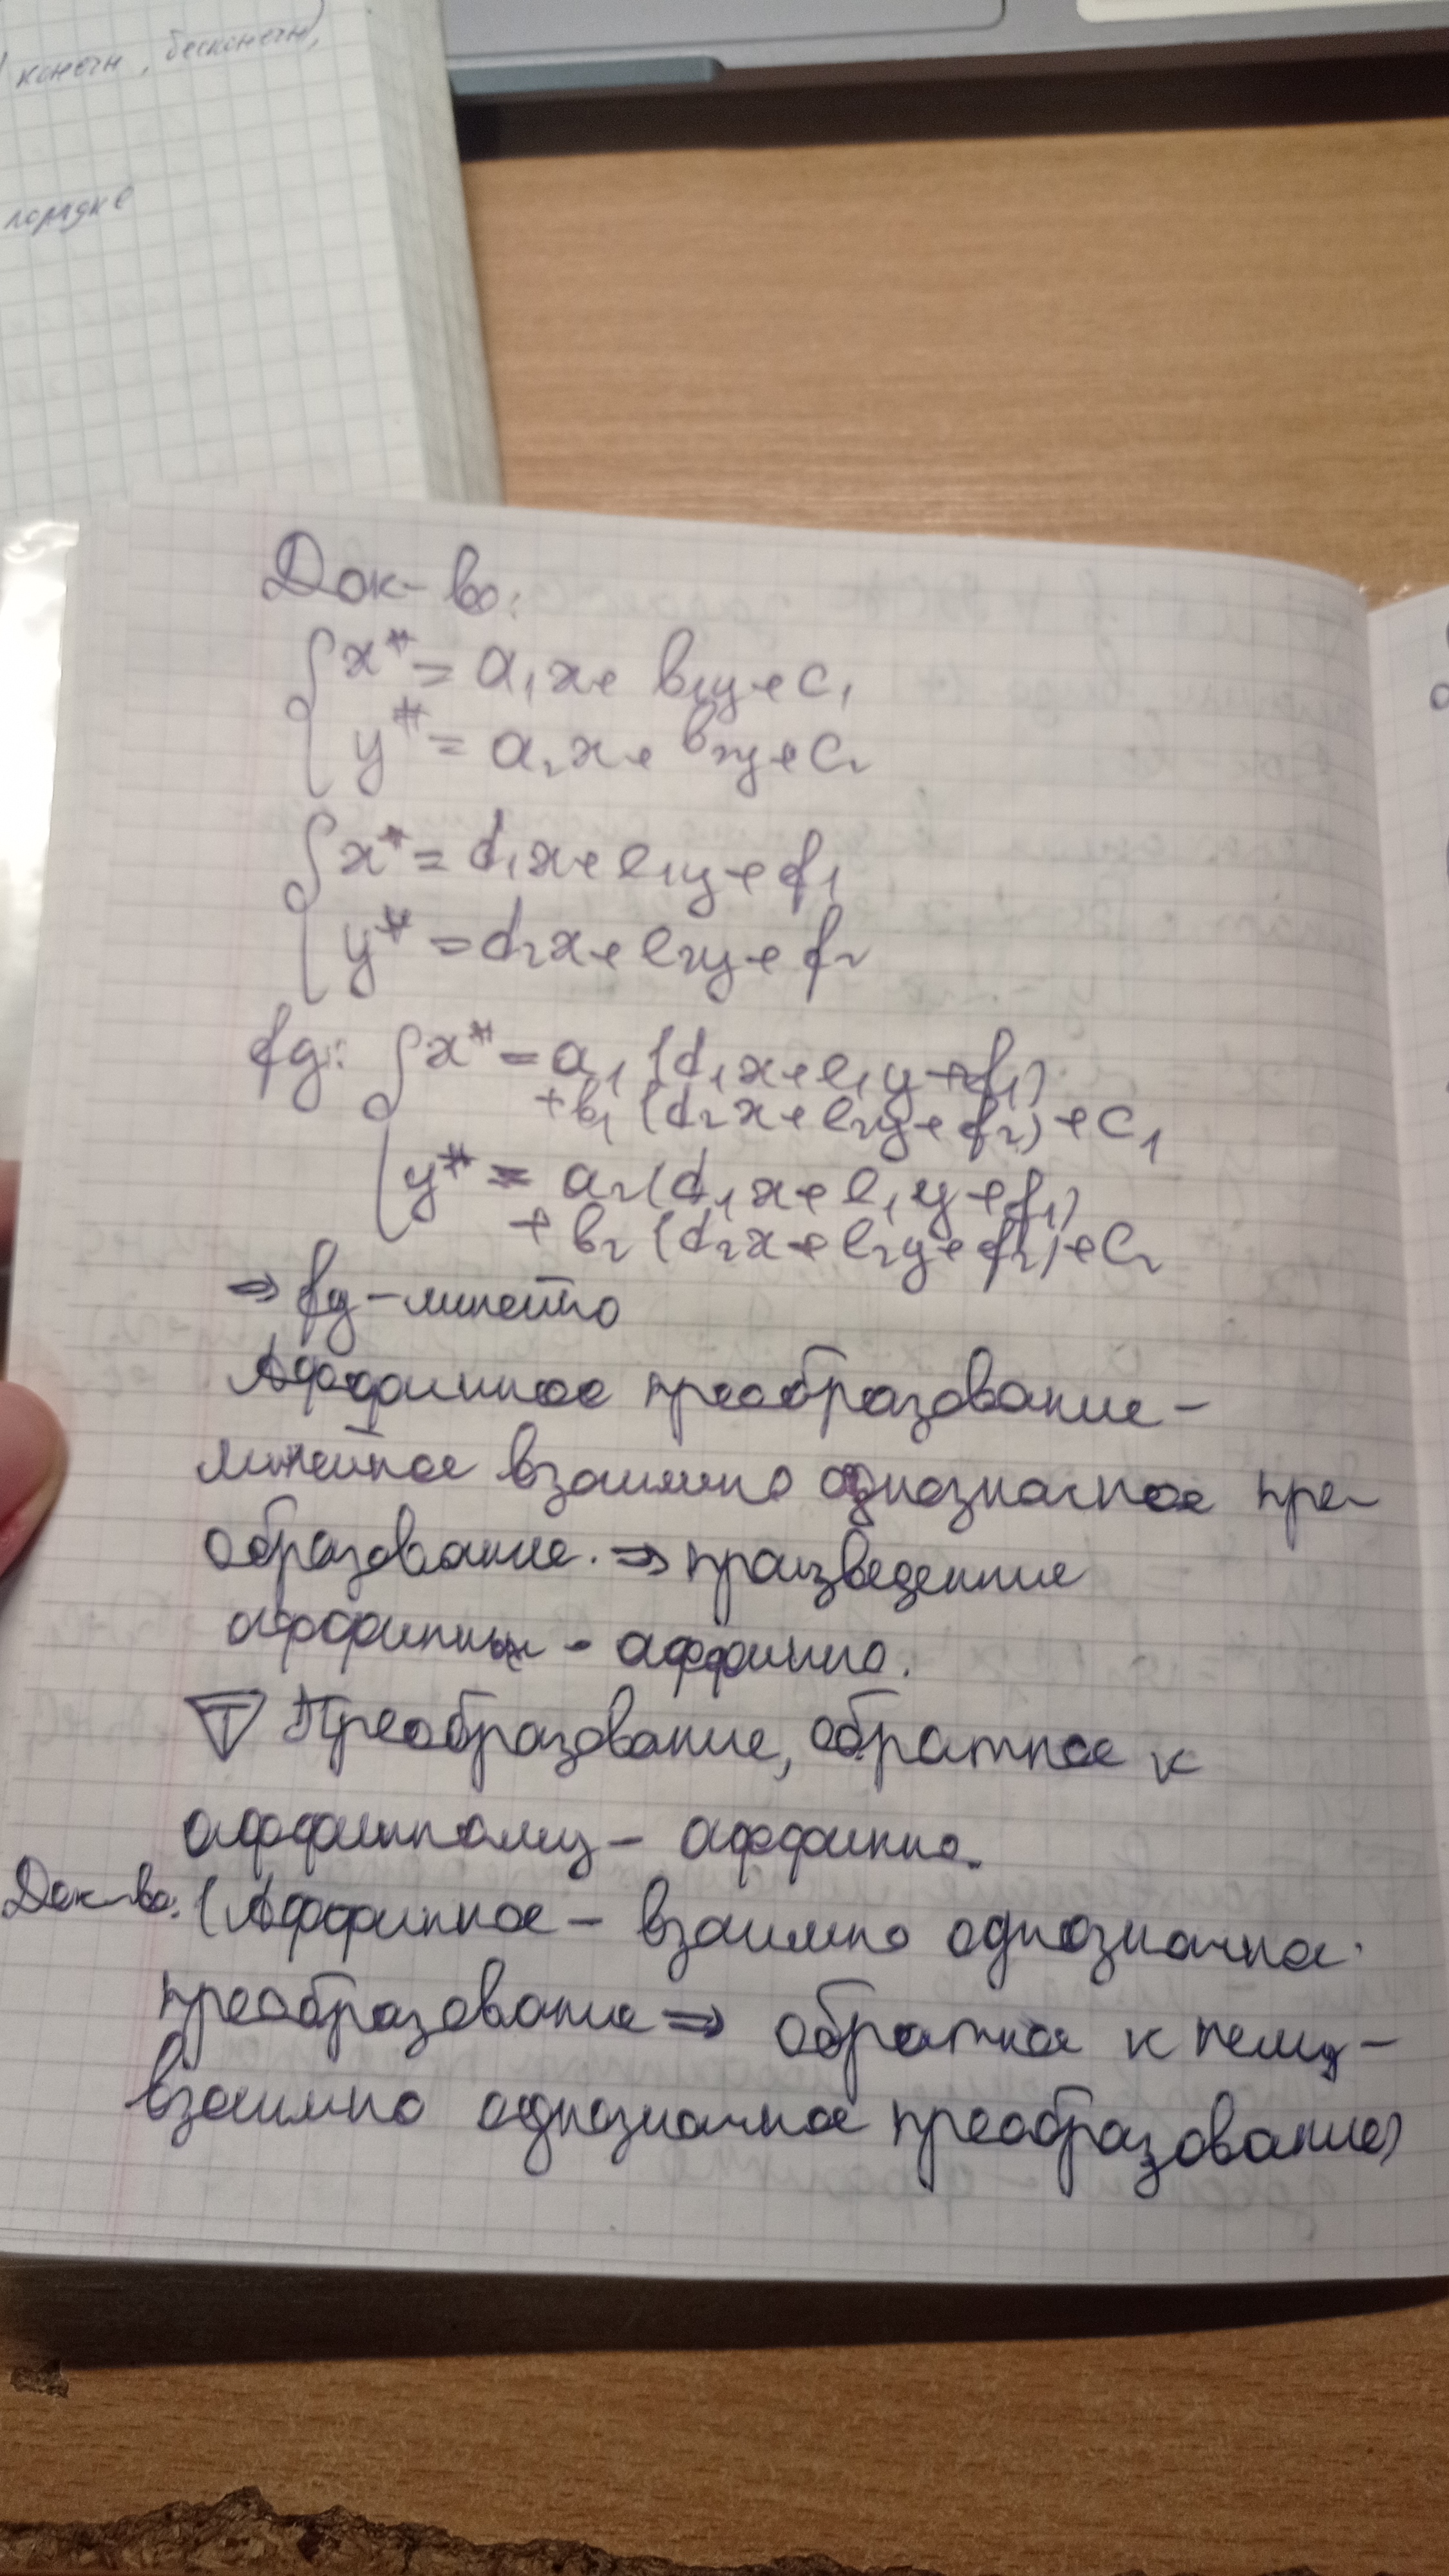 конечн, бесконечн,
порядке
Док-во:
{ x* = a₁x + b₁y + c₁
y* = a₂x + b₂y + c₂
{ x* = d₁x + e₁y + f₁
y* = d₂x + e₂y + f₂
fg: { x* = a₁(d₁x + e₁y + f₁)
+ b₁(d₂x + e₂y + f₂) + c₁
y* = a₂(d₁x + e₁y + f₁)
+ b₂(d₂x + e₂y + f₂) + c₂
⇒ fg – линейно
Аффинное преобразование –
линейное взаимно однозначное пре-
образование. ⇒ произведение
аффинных - аффинно.
T Преобразование, обратное к
аффинному – аффинно.
Док-во: (Аффинное – взаимно однозначное
преобразование ⇒ обратное к нему –
взаимно однозначное преобразование)